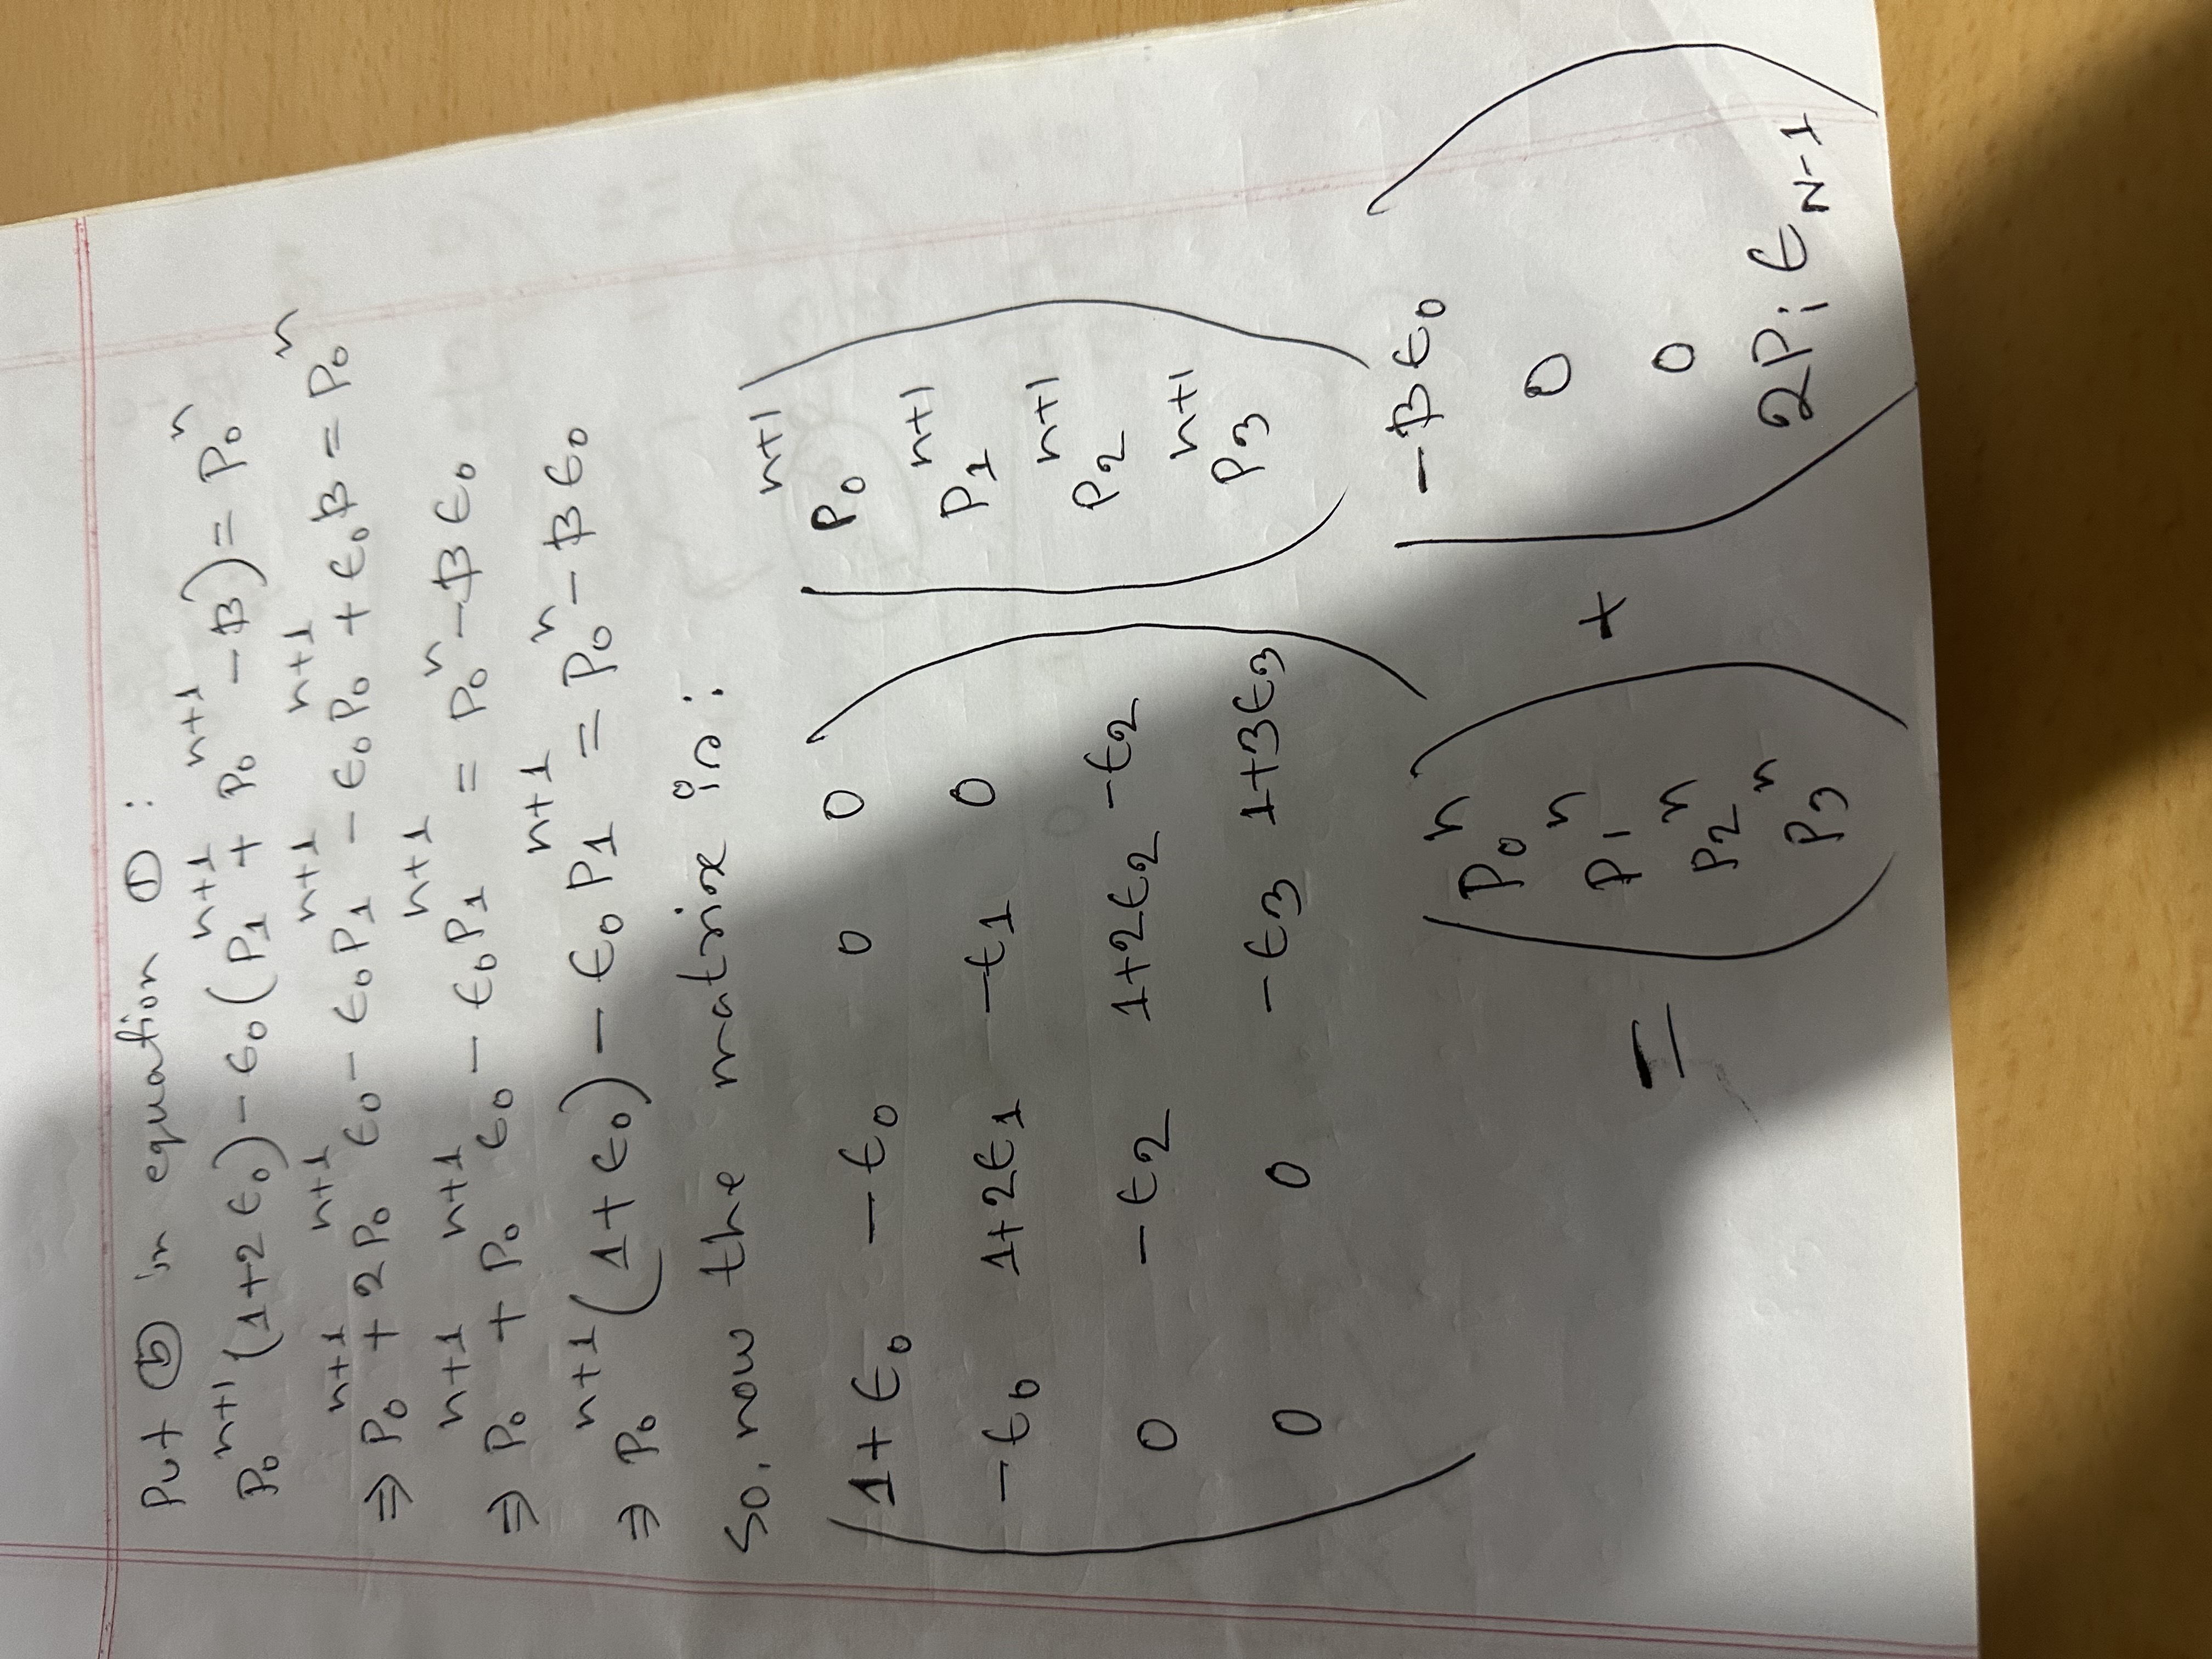 Put ⑤ in equation ① :
P₀ⁿ⁺¹ (1+2ϵ₀) - ϵ₀ (P₁ⁿ⁺¹ + P₀ⁿ⁺¹ - B) = P₀ⁿ
⇒ P₀ⁿ⁺¹ + 2P₀ⁿ⁺¹ ϵ₀ - ϵ₀P₁ⁿ⁺¹ - ϵ₀P₀ⁿ⁺¹ + ϵ₀B = P₀ⁿ
⇒ P₀ⁿ⁺¹ + P₀ⁿ⁺¹ ϵ₀ - ϵ₀P₁ⁿ⁺¹ = P₀ⁿ - Bϵ₀
⇒ P₀ⁿ⁺¹ (1+ϵ₀) - ϵ₀P₁ⁿ⁺¹ = P₀ⁿ - Bϵ₀
So, now the matrix is :
(1+ϵ₀ -ϵ₀ 0 0) (P₀ⁿ⁺¹)
(-ϵ₀ 1+2ϵ₁ -ϵ₁ 0) (P₁ⁿ⁺¹)
(0 -ϵ₂ 1+2ϵ₂ -ϵ₂) (P₂ⁿ⁺¹)
(0 0 -ϵ₃ 1+3ϵ₃) (P₃ⁿ⁺¹)
(P₀ⁿ) (-Bϵ₀)
(P₁ⁿ) (0)
= (P₂ⁿ) + (0)
(P₃ⁿ) (2Pᵢ ϵ_N-1)